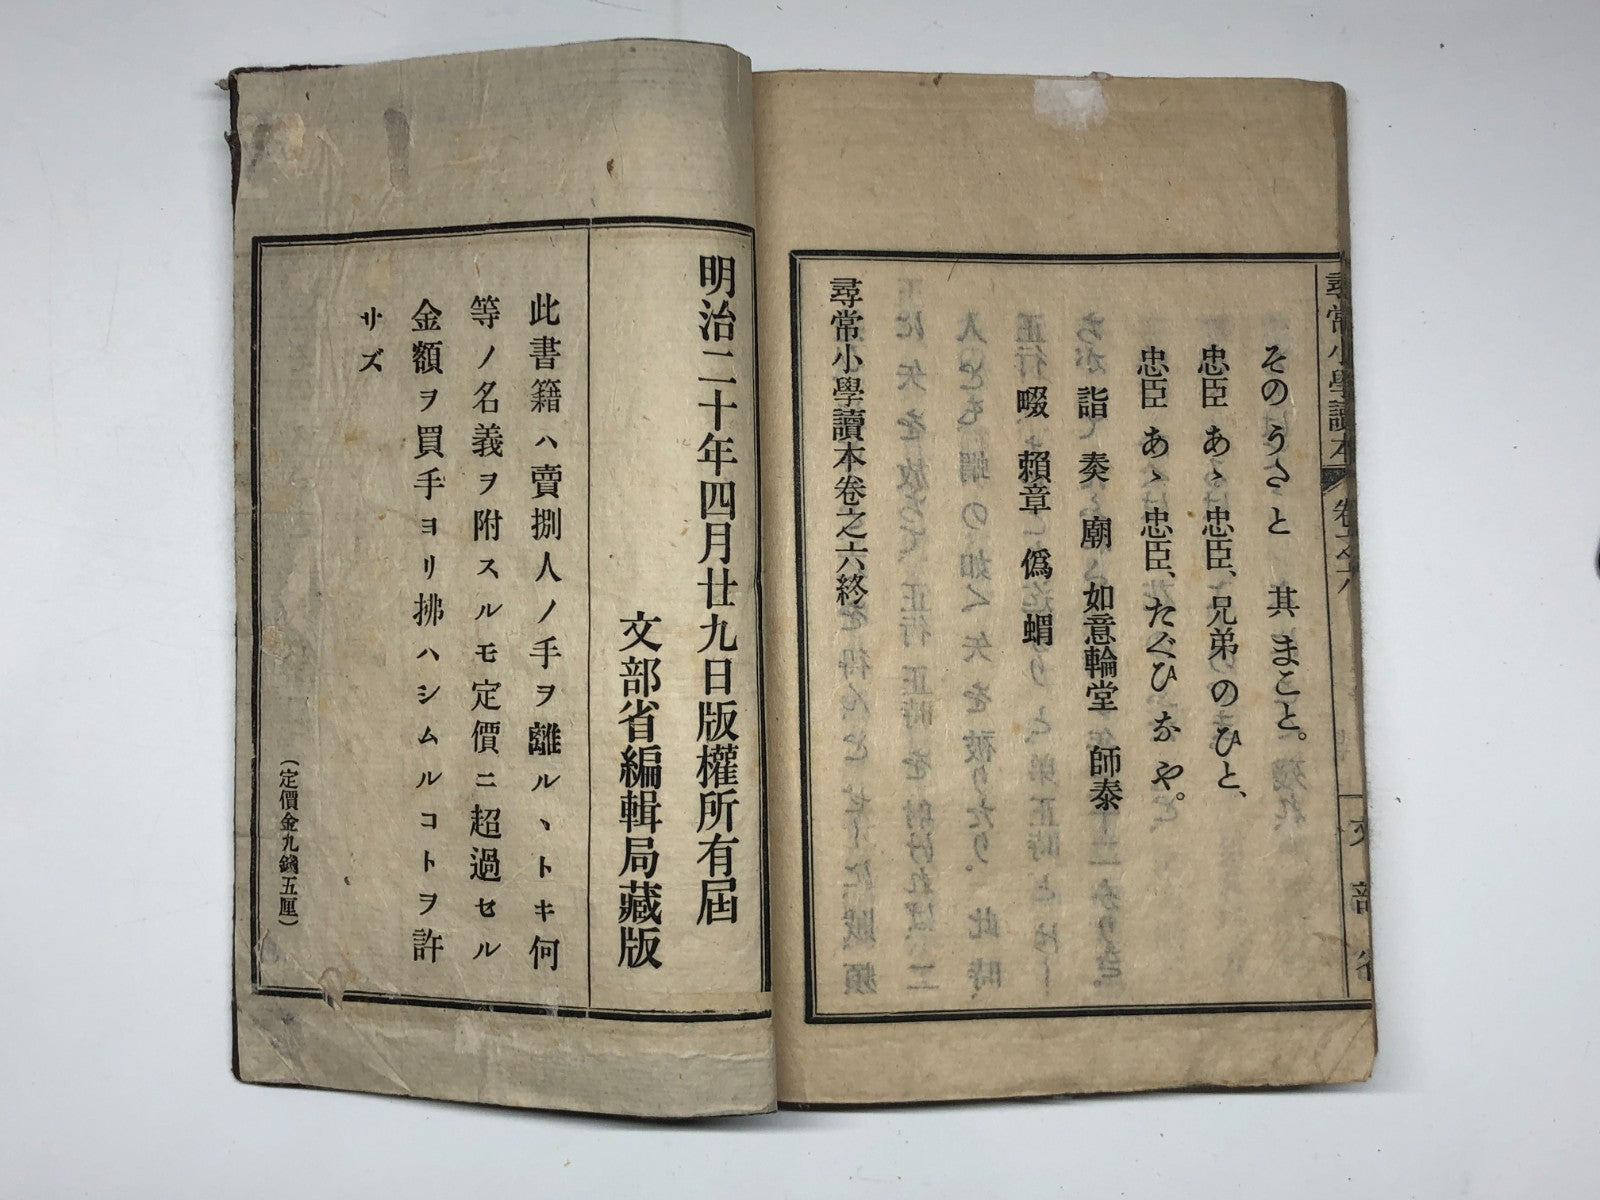 尋常小學讀本 卷之六
文部省
そのいうさと 其まこと。
忠臣あゝ忠臣、兄弟のひと、
忠臣あゝ忠臣、たぐひなや。
詣 奏 廟 如意輪堂 師泰
畷 賴章 僞 蝟
尋常小學讀本卷之六終
明治二十年四月廿九日版權所有屆
文部省編輯局藏版
此書籍ハ賣捌人ノ手ヲ離ルヽトキ何
等ノ名義ヲ附スルモ定價ニ超過セル
金額ヲ買手ヨリ拂ハシムルコトヲ許
サズ
(定價金九錢五厘)